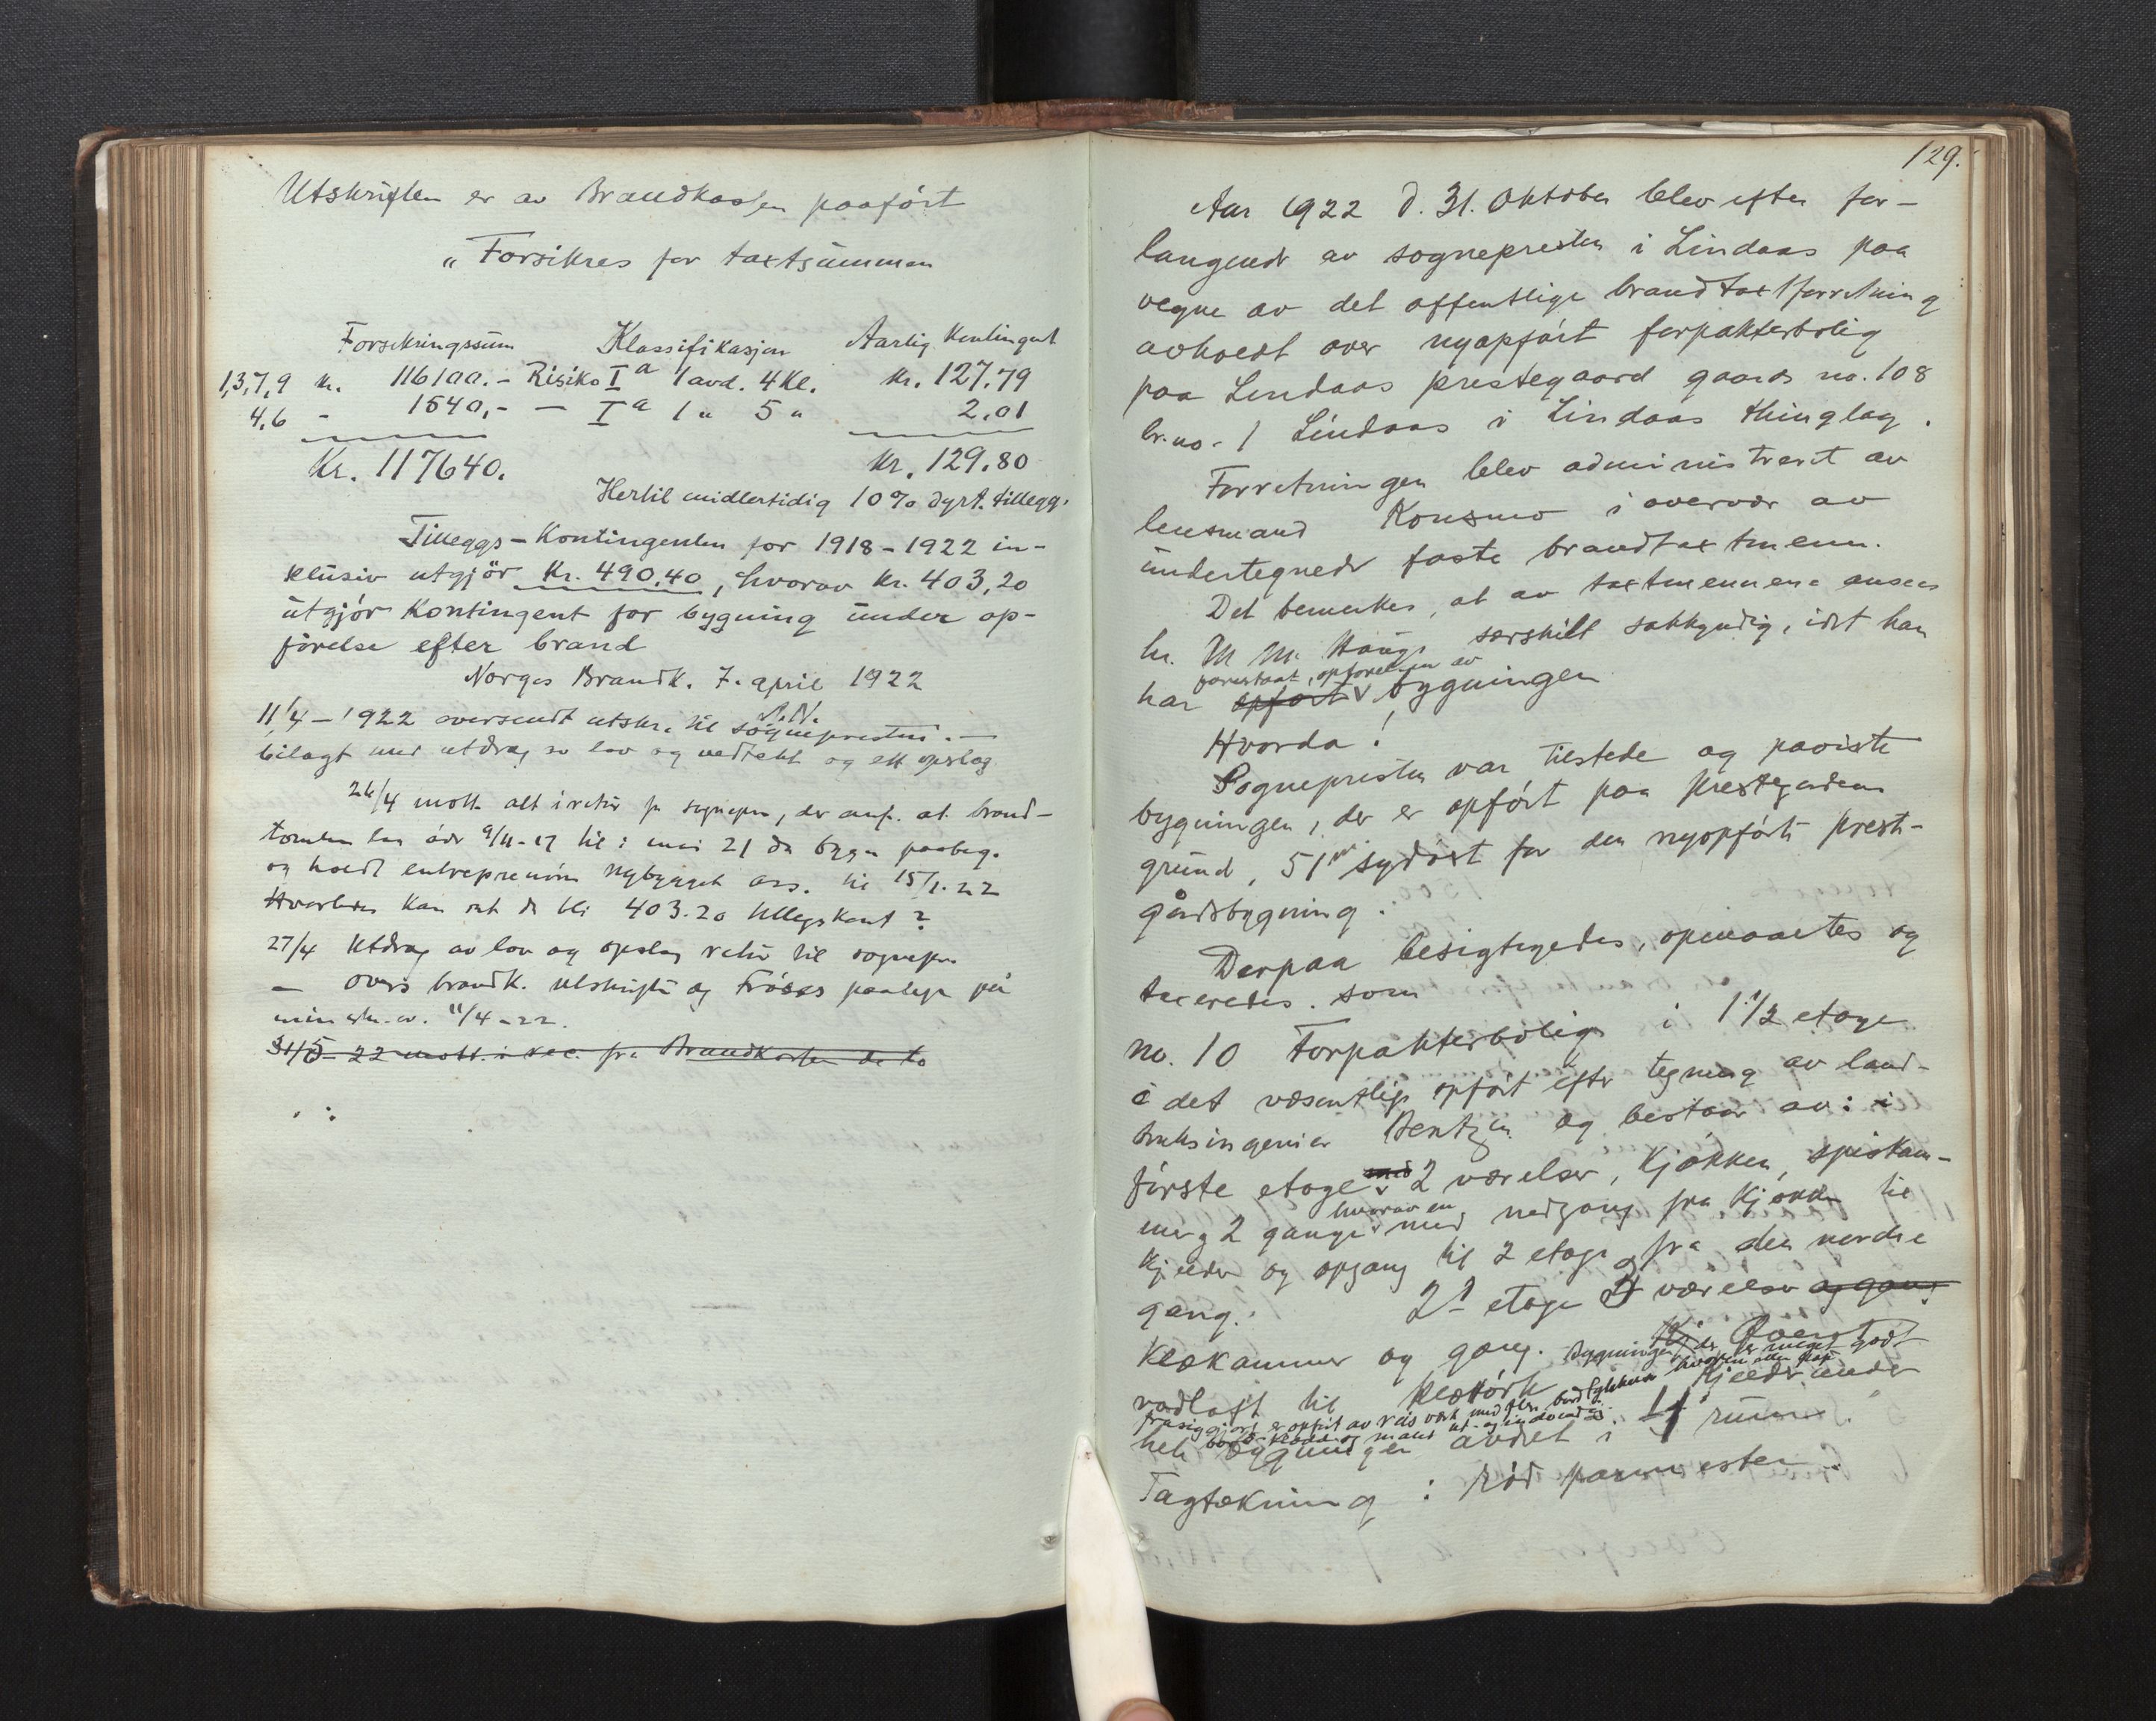 Utskriften er av Brandkassen paaført
„Forsikres for taxtsummen
Forsikringssum Klassifikasjon Aarlig Kontingent
1,3,7,9 kr. 116100.- Risiko Iª 1 avd. 4 Kl. kr. 127.79
4,6 - 1540,- — Iª 1 „ 5 „ 2.01
Kr. 117640. kr. 129.80
Hertil midlertidig 10% dyrt. tillegg.
Tilleggs-Kontingenten for 1918-1922 in-
klusiv utgjør Kr. 490.40, hvorav kr. 403,20
utgjør Kontingent for bygning under op-
førelse efter brand
Norges Brandk. 7. april 1922
11/4-1922 oversendt utskr. til sogneprestn.—
bilagt med utdrag av lov og vedtekt og ett opslag
26/4 mott. alt i retur fr sognepr, der anf. at brand-
tomten laa øde 9/11-17 til: mai 21 da bygn paabeg.
og holdt entreprenøren nybygget ass. til 15/1.22
Hvorledes kan det da bli 403.20 tillegskont?
27/4 Utdrag av lov og opslag retur til sognepr
— overs brandk. utskriften og paategn på
min skr. av. 11/4-22.
31/5-22 mott. i rec. fra Brandkassen de to
129.
Aar 1922 d. 31. Oktober blev efter for-
langende av sognepresten i Lindaas paa
vegne av det offentlige brandtaxtforretning
avholdt over nyopført forpakterbolig
paa Lindaas prestegaard gaards no. 108
br.no. 1 Lindaas i Lindaas thinglag.
Forretningen blev administreret av
lensmand Konsmo i overvær av
undertegnede faste brandtaxtmenn.
Det bemerkes, at av taxtmennene ansees
hr. M M. Hauge særskilt sakkyndig, idet han
forestaat, opførelsen av
har opført bygningen
Hvorda!
Sognepresten var tilstede og paaviste
bygningen, der er opført paa prestegardens
grund, 51 m sydøst for den nyopførte prest-
gårdsbygning.
Derpaa besigtigedes, opmaaltes og
taxeredes som
no. 10 Forpakterbolig i 1 1/2 etage
i det væsentlige opført efter tegning av land-
bruksingeniør Bentzen og bestaar av: i
første etage med 2 værelser, kjøkken, spiskam-
hvorav en
mer, 2 gange med nedgang fra kjøkken til
kjelder og opgang til 2 etage fra den nordre
gang. 2. etage 3 værelser og gang
klækammer og gang. Øverst
Bygningen, der er meget godt
rodloft til klætørk kjelder under
frasiggjort er opført av reisverk med
hele bygningen avdelt i 4 rum.
Tagtækning: rød pannesten.